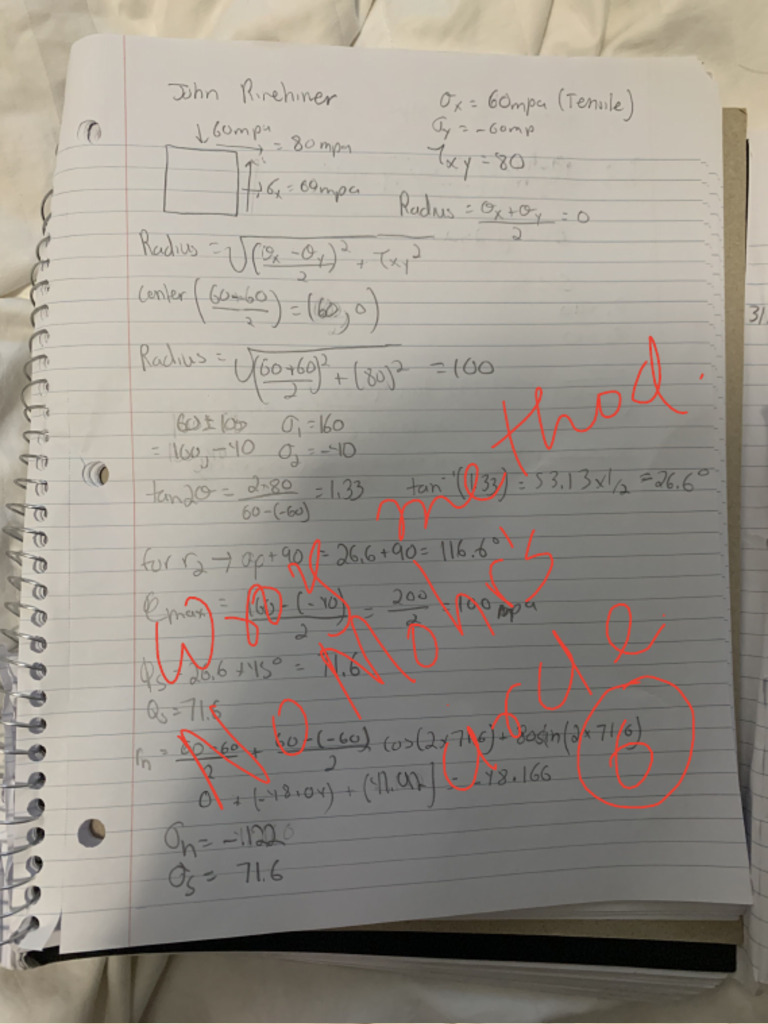 John Rinehiner
σx = 60mpa (Tensile)
σy = -60mp
τxy = 80
↓60mpa
→ = 80 mpa
σx = 60mpa
Radius = σx+σy/2 = 0
Radius = √(σx - σy/2)² + τxy²
center (60-60/2) = (160, 0)
Radius = √(60+60/2)² + (80)² = 100
60 ± 100 σ1 = 160
= 160, -40 σ2 = -40
tan2θ = 2·80/60-(-60) = 1.33 tan⁻¹(1.33) = 53.13 x 1/2 = 26.6°
for r2 → θp + 90 = 26.6 + 90 = 116.6°
max = 160-(-40)/2 = 200/2 = 100 mpa
26.6 + 45° = 71.6
θs = 71.6
60-60/2 + 60-(-60)/2 cos(2x71.6) + 80sin(2x71.6)
0 + (-48.04) + (47.92) = -48.166
σn =
σs = 71.6
Wrong method.
No Moh's
circle
0